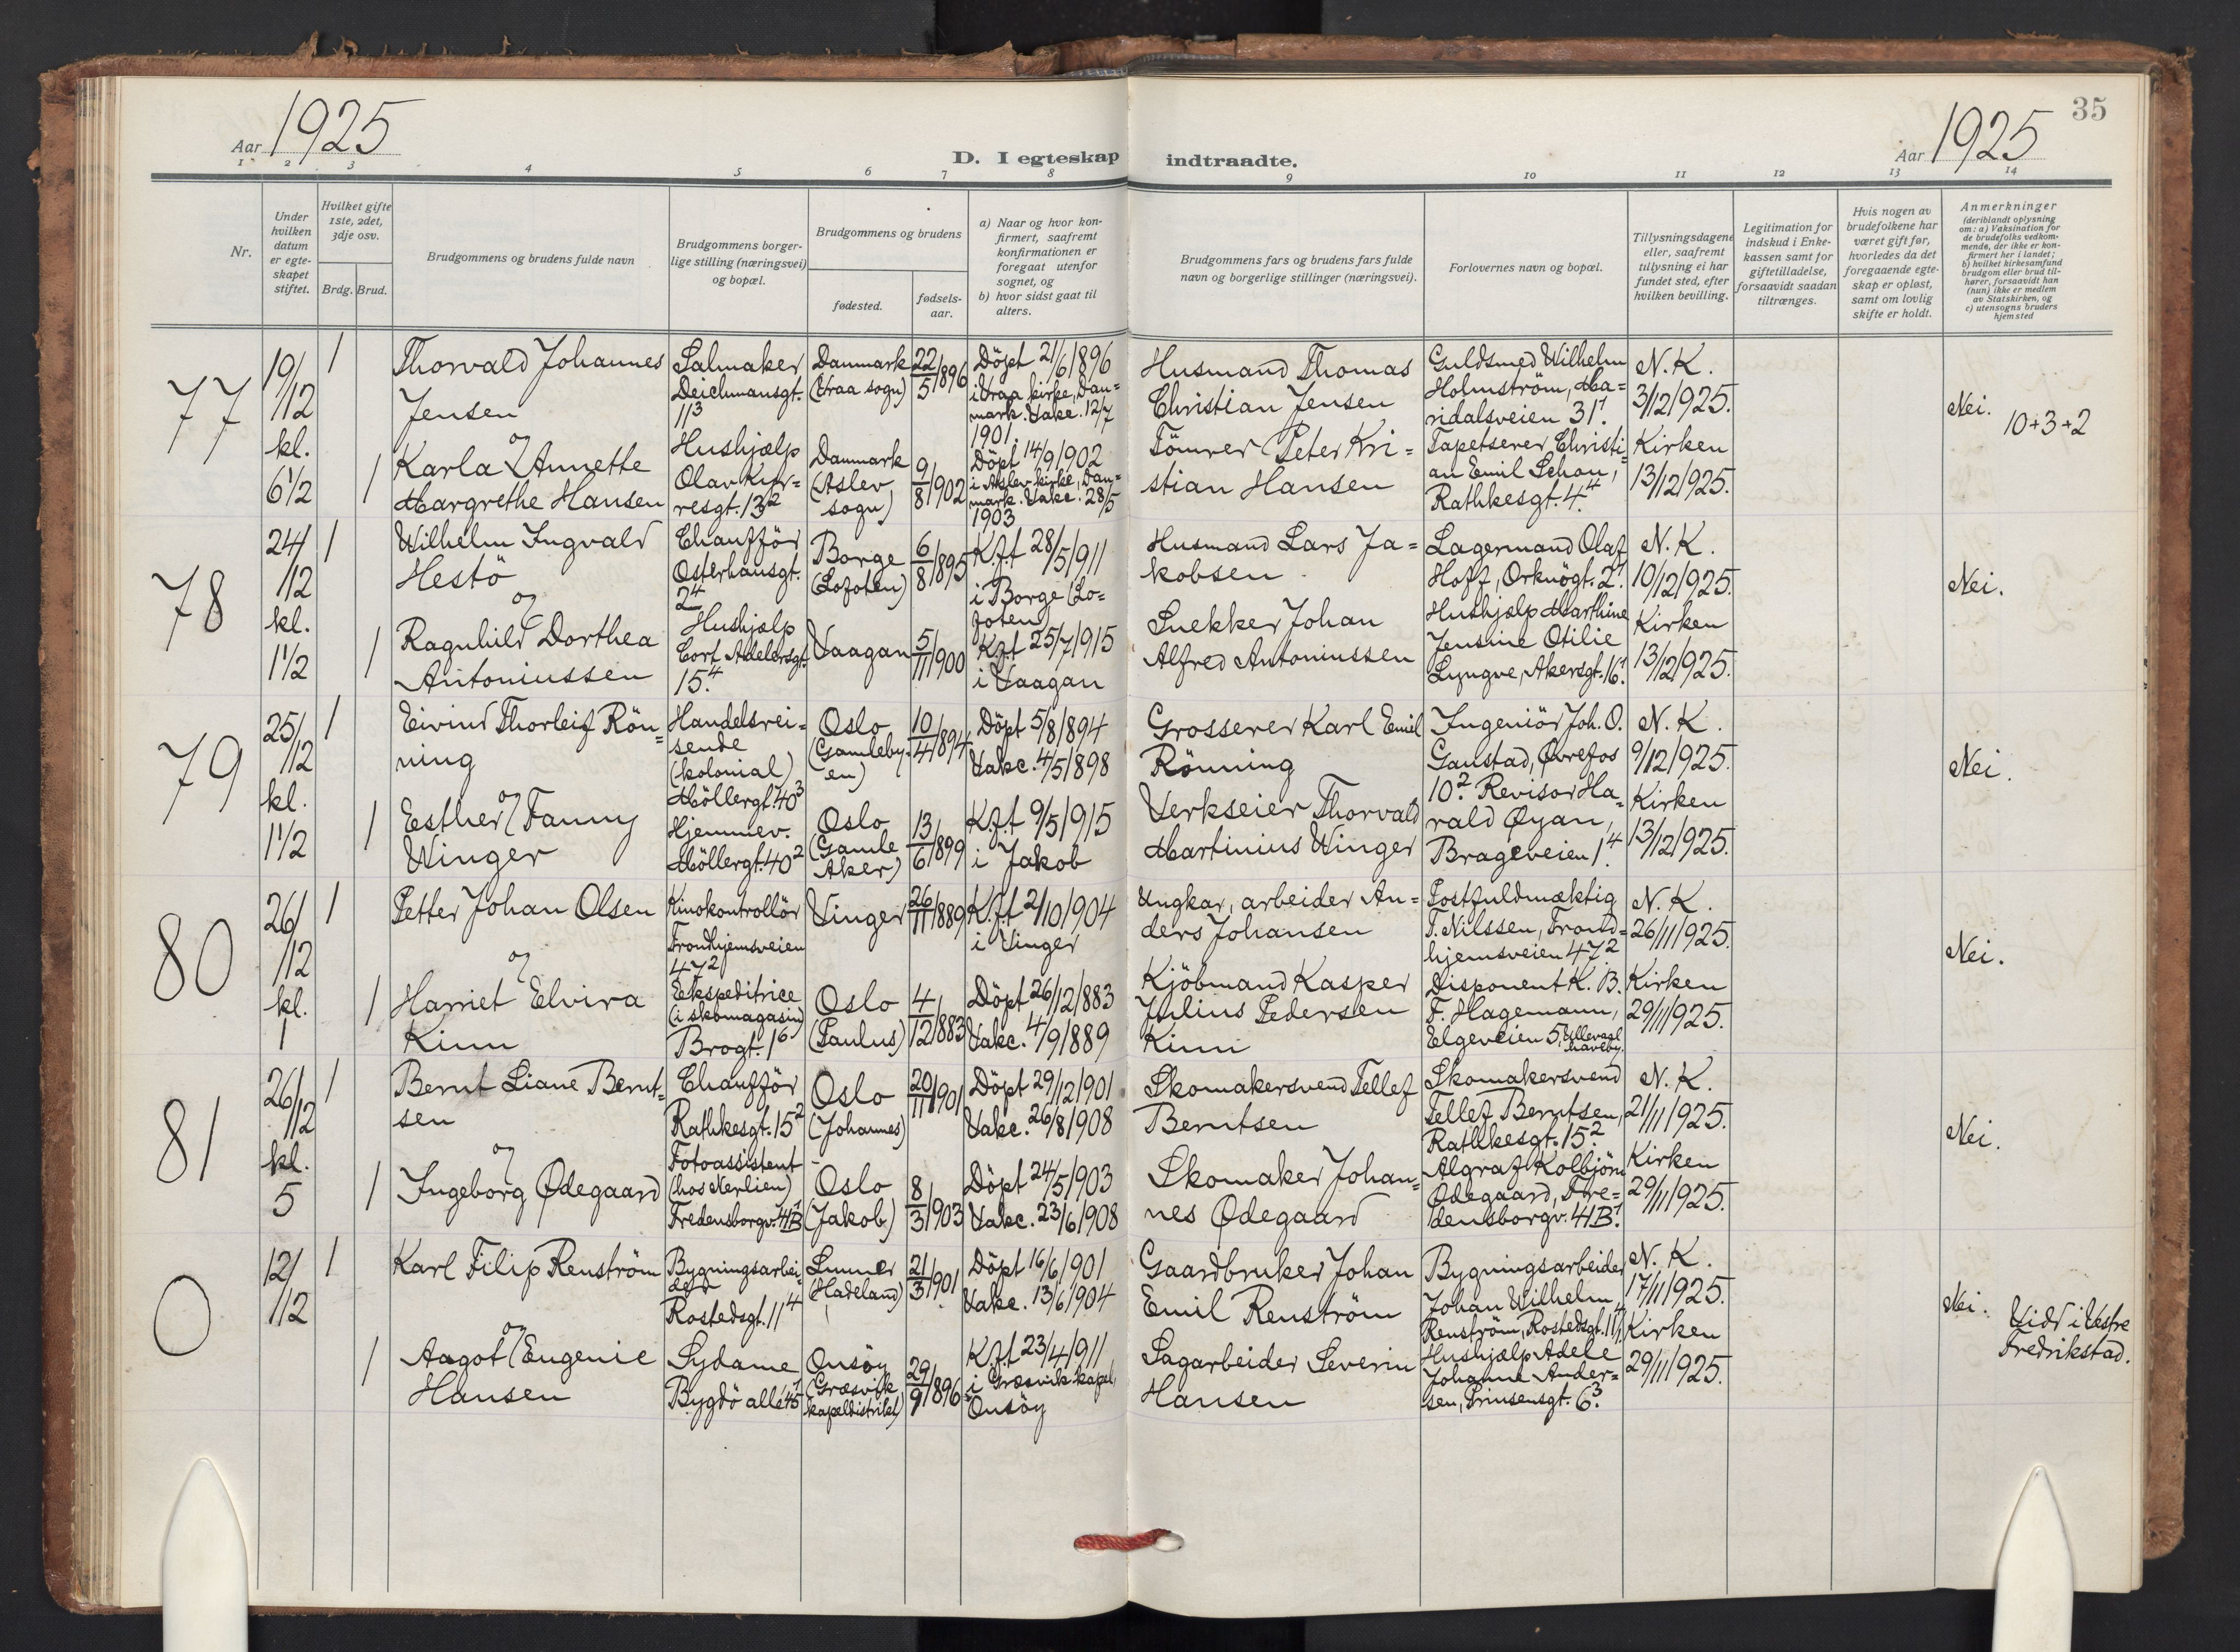 35
Aar 1925
D. I egteskap indtraadte.
Aar 1925
1 2 3 4 5 6 7 8 9 10 11 12 13 14
Nr.
Under
hvilken
datum
er egte-
skapet
stiftet.
Hvilket gifte
1ste, 2det,
3dje osv.
Brdg. Brud.
Brudgommens og brudens fulde navn
Brudgommens borger-
lige stilling (næringsvei)
og bopæl.
Brudgommens og brudens
fødested.
fødsels-
aar.
a) Naar og hvor kon-
firmert, saafremt
konfirmationen er
foregaat utenfor
sognet, og
b) hvor sidst gaat til
alters.
Brudgommens fars og brudens fars fulde
navn og borgerlige stillinger (næringsvei).
Forlovernes navn og bopæl.
Tillysningsdagene
eller, saafremt
tillysning ei har
fundet sted, efter
hvilken bevilling.
Legitimation for
indskud i Enke-
kassen samt for
giftetilladelse,
forsaavidt saadan
tiltrænges.
Hvis nogen av
brudefolkene har
været gift før,
hvorledes da det
foregaaende egte-
skap er opløst,
samt om lovlig
skifte er holdt.
Anmerkninger
(deriblandt oplysning
om: a) Vaksination for
de brudefolks vedkom-
mende, der ikke er kon-
firmert her i landet;
b) hvilket kirkesamfund
brudgom eller brud til-
hører, forsaavidt han
(hun) ikke er medlem
av Statskirken, og
c) utensogns bruders
hjemsted
77
19/
/12
kl.
6 1/2
1
Thorvald Johannes
Jensen
og
Salmaker
Deichmansgt.
11³
Danmark
(Vraa sogn)
22/5 1896
Döpt 21/6 1896
i Vraa kirke, Dan=
mark. Vakc. 12/7
1901.
Husmand Thomas
Christian Jensen
Guldsmed Wilhelm
Holmström, Ma=
ridalsveien 31¹.
N. K.
3/12 1925.
Nei.
10+3+2
1
Karla Annette
Margrethe Hansen
Hushjælp
Olav Kyr=
resgt. 13²
Danmark
(Aslev
sogn)
9/8 1902
Döpt 14/9 1902
i Aslev kirke, Dan=
mark. Vakc. 28/5
1903
Tömrer Peter Kri=
stian Hansen
Tapetserer Christi=
an Emil Schou,
Rathkesgt. 4⁴.
Kirken
13/12 1925.
78
24/
/12
kl.
1 1/2
1
Wilhelm Ingvald
Hestö
og
Chaufför
Osterhausgt.
2⁴
Borge
(Lofoten)
6/8 1895
K.f.t 28/5 1911
i Borge (Lo=
foten)
Husmand Lars Ja=
kobsen
Lagermand Olaf
Hoff, Orknögt. 2¹.
N. K.
10/12 1925.
Nei.
1
Ragnhild Dorthea
Antoniussen
Hushjælp
Cort Adelersgt.
15.⁴
Vaagan
5/11 1900
K.f.t 25/7 1915
i Vaagan
Snekker Johan
Alfred Antoniussen
Hushjælp Marthine
Jensine Otilie
Lyngve, Akersgt. 16¹.
Kirken
13/12 1925.
79
25/
/12
kl.
1 1/2
1
Eivind Thorleif Rön=
ning
og
Handelsrei=
sende
(kolonial)
Möllergt. 40³
Oslo
(Gamleby-
en)
10/4 1894
Döpt 5/8 1894
Vakc. 4/5 1898
Grosserer Karl Emil
Rönning
Ingeniör Joh. O.
Gaustad, Øvrefos
10². Revisor Ha=
N. K.
9/12 1925.
Nei.
1
Esther Fanny
Winger
Hjemmev.
Möllergt. 40²
Oslo
(Gamle
Aker)
13/6 1899
K.f.t 9/5 1915
i Jakob
Verkseier Thorvald
Martinius Winger
rald Øyan,
Brageveien 1⁴.
Kirken
13/12 1925.
80
26/
/12
kl.
1
1
Petter Johan Olsen
og
Kinokontrollör
Trondhjemsveien
47²
Vinger
26/11 1889
K.f.t 2/10 1904
i Vinger
Ungkar, arbeider An=
ders Johansen
Postfuldmæktig
T. Nilssen, Trond=
hjemsveien 47².
N. K.
26/11 1925.
Nei.
1
Harriet Elvira
Kinn
Ekspeditrice
(i skomagasin)
Brogt. 1⁶
Oslo
(Paulus)
4/12 1883
Döpt 26/12 1883
Vakc. 4/9 1889
Kjöbmand Kasper
Julius Pedersen
Kinn
Disponent K. B.
F. Hagemann,
Elgeveien 5, Ullevaal
haveby.
Kirken
29/11 1925.
81
26/
/12
kl.
5
1
Bernt Liane Bernt=
sen
og
Chaufför
Rathkesgt. 15²
Oslo
(Johannes)
20/11 1901
Döpt 29/12 1901
Vakc. 26/8 1908
Skomakersvend Tellef
Berntsen
Skomakersvend
Tellef Berntsen,
Rathkesgt. 15².
N. K.
21/11 1925.
Nei.
1
Ingeborg Ødegaard
Fotoassistent
(hos Nerlien)
Fredensborgv. 41B¹
Oslo
(Jakob)
8/3 1903
Döpt 24/5 1903
Vakc. 23/6 1908
Skomaker Johan=
nes Ødegaard
Algraf Kolbjörn
Ødegaard, Fre=
densborgv. 41B¹.
Kirken
29/11 1925.
0
12/
/12
1
Karl Filip Renström
og
Bygningsarbei=
der
Rostedsgt. 11⁴
Lunner
(Hadeland)
21/3 1901
Döpt 16/6 1901
Vakc. 13/6 1904
Gaardbruker Johan
Emil Renström
Bygningsarbeider
Johan Wilhelm
Renström, Rostedsgt. 11⁴,
N. K.
17/11 1925.
Nei.
Vidd i Vestre
Fredrikstad.
1
Aagot Eugenie
Hansen
Sydame
Bygdö allé 45¹
Onsöy
(Græsvik
kapeldistrikt)
29/9 1896
K.f.t 23/4 1911
i Græsvik kapel,
Onsöy
Sagarbeider Severin
Hansen
Hushjælp Adele
Johanne Ander=
sen, Prinsensgt. 6³.
Kirken
29/11 1925.